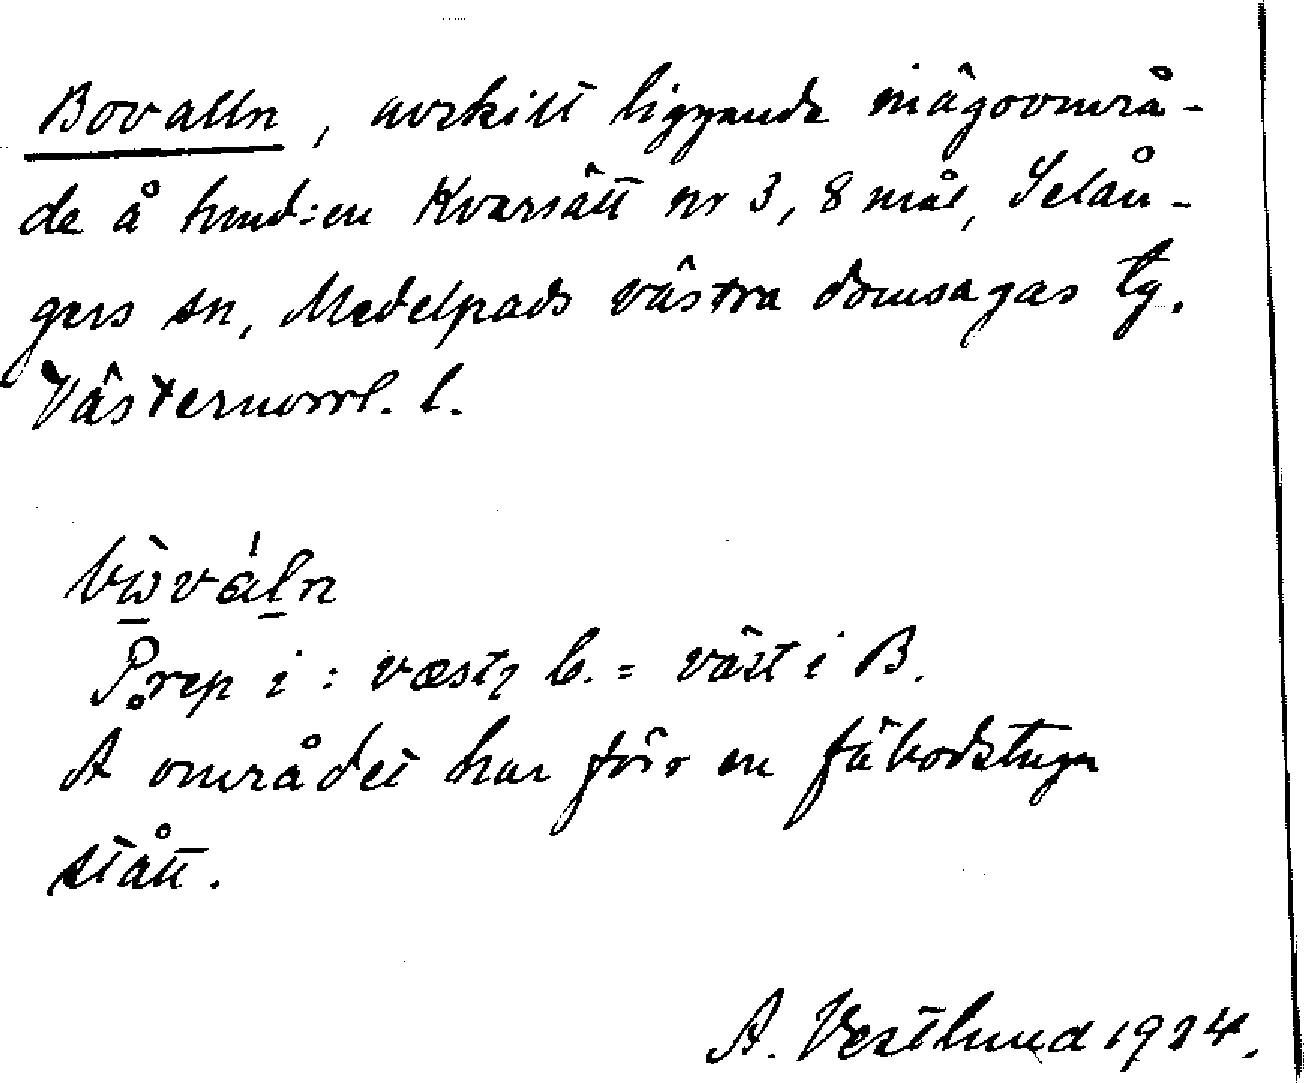 Bovalln, avskilt liggande inägoområ-
de å hmd:en Kvarsätt nr 3, 8 mål, Selån-
gers sn, Medelpads västra domsagas tg.
Västernorrl. l.
bὼválṇ
Prep i : væstɩ b. = väst i B.
Å området har förr en fäbodstuga
stått.
A. Vestlund 1924.